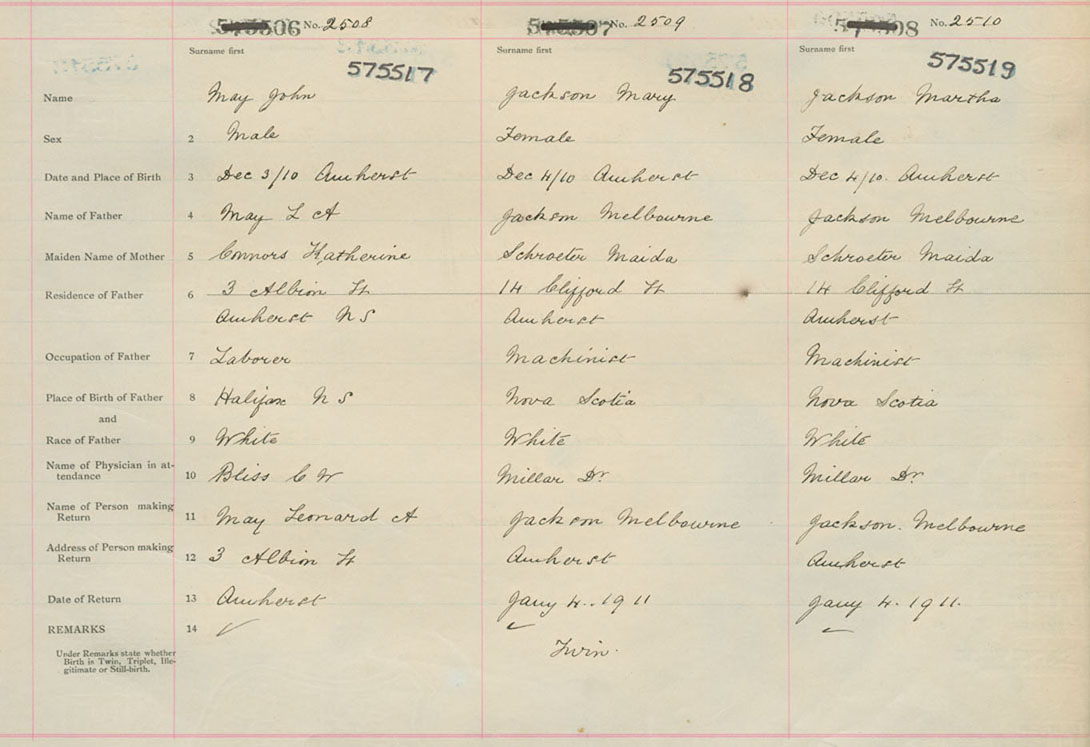 No. 2508 No. 2509 No. 2510
Surname first Surname first Surname first
575517 575518 575519
Name May John Jackson Mary Jackson Martha
Sex 2 Male Female Female
Date and Place of Birth 3 Dec 3/10 Amherst Dec 4/10 Amherst Dec 4/10. Amherst
Name of Father 4 May L A Jackson Melbourne Jackson Melbourne
Maiden Name of Mother 5 Connors Katherine Schroeter Maida Schroeter Maida
Residence of Father 6 3 Albion St 14 Clifford St 14 Clifford St
Amherst N S Amherst Amherst
Occupation of Father 7 Laborer Machinist Machinist
Place of Birth of Father 8 Halifax N S Nova Scotia Nova Scotia
and
Race of Father 9 White White White
Name of Physician in at-
tendance 10 Bliss C W Millar Dr. Millar Dr.
Name of Person making
Return 11 May Leonard A Jackson Melbourne Jackson. Melbourne
Address of Person making
Return 12 3 Albion St Amherst Amherst
Date of Return 13 Amherst Jany 4. 1911 Jany 4. 1911.
REMARKS 14 ✓ ✓ ✓
Under Remarks state whether
Birth is Twin, Triplet, Ille-
gitimate or Still-birth.
Twin.